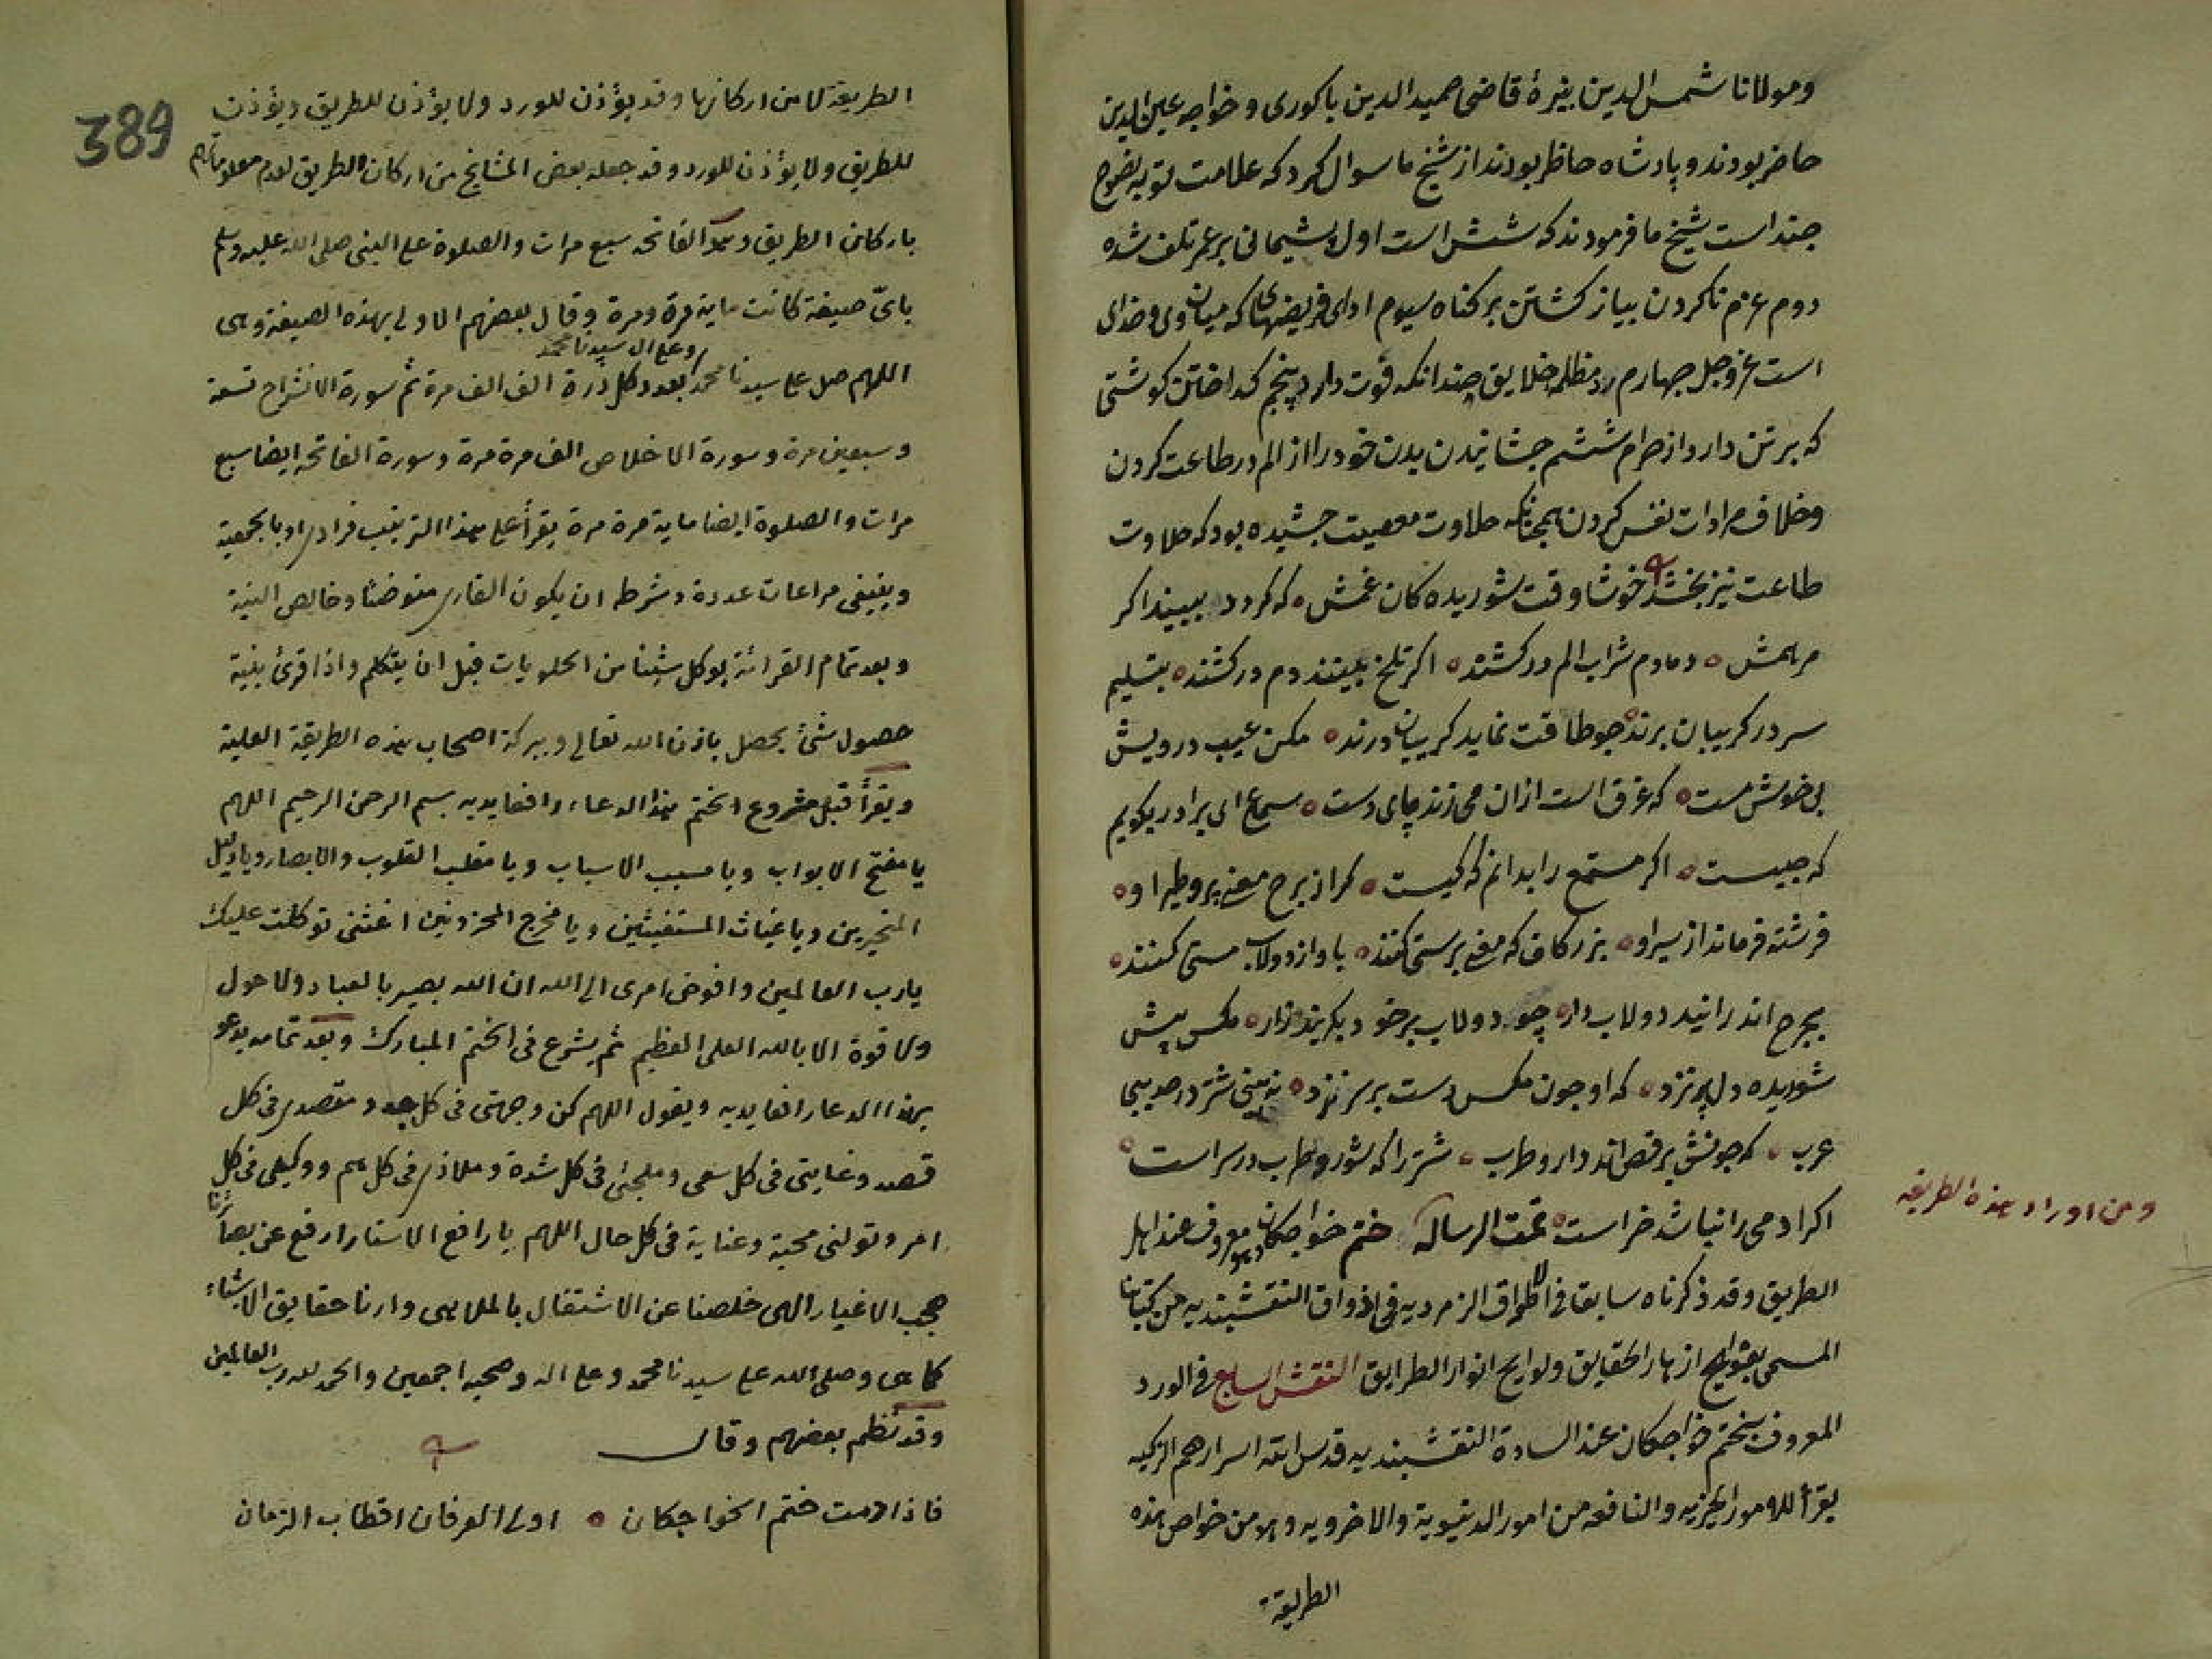 ومولانا شمس الدين نبيرهٔ قاضى حميد الدين ناكورى و خواجه عين الدين
حاضر بودند و پادشاه حاظر بودند از شيخ ما سوال كرد كه علامت توبه نضوح
چند است شيخ ما فرمودند كه شش است اول پشيمانى بر عمر تلف شده
دوم عزم ناكردن بباز كشتن بر كناه سيوم اداى فريضهاى كه ميان وى و خداى
است عز و جل چهارم رد مظلمه خلايق چندانكه قوت دارد پنجم كداختن كوشتى
كه بر تن دارد از حرام ششم چشانيدن بدن خود را از الم در طاعت كردن
وخلاف مرادات نفس كردن همچنانكه حلاوت معصيت چشيده بود كه حلاوت
طاعت نيز بخشد خوشا وقت شوريده كان غمش كه كردد ببيند اكر
مرهمش دمادم شراب الم در كشند اكر تلخ بينند دم در كشند بتسليم
سر در كريبان برند چو طاقت نمايد كريبان درند مكن عيب درويش
بى خوش مست كه غرق است از ان مى زند پاى دست سماع اى برادر بكويم
كه چيست اكر مستمع را بدانم كه كيست كر از برج معنى پرد طير او
فرشته فرماند از سير او بزركان كه مى پرستى كنند باواز دولاب مستى كنند
بچرخ اندر آيند دولاب دار چو دولاب بر خود بكريند زار مكس پيش
شوريده دل پر نزد كه او چون مكس دست بر سر نزد نه بينى شتر در حديى
عرب كه چونش برقص اندر آرد طرب شتر را كه شور و طرب در سر است
اكر ادمى را نباشد خر است تمت الرساله ختم خواجكان وهو معروف عند اهل
الطريق وقد ذكرناه سابقا فى الاطواق الزمرديه فى اذواق النقشبنديه من كتابنا
المسمى بفوايح ازهار الحقايق ولوايح انوار الطرايق النقش السابع فى الورد
المعروف بختم خواجكان عند السادة النقشبنديه قدس الله اسرارهم الزكيه
يقرأ للامور الخيريه والنافعه من امور الدنيوية والاخرويه وهو من خواص هذه
الطريقة
ومن اوراد هذه الطريقه
389
الطريقة لا من اركانها وقد يؤذن للورد ولا يؤذن للطريق ويؤذن
للطريق ولا يؤذن للورد وقد جعله بعض المشايخ من اركان الطريق لعدم معلوماتهم
باركان الطريق وهو الفاتحه سبع مرات والصلوة على النبى صلى الله عليه وسلم
باىّ صيغة كانت ماية مرة ومرة وقال بعضهم الاولى بهذه الصيغة وهى
اللهم صل على سيدنا محمد وعلى ال سيدنا محمد بعدد كل ذرة الف الف مرة ثم سورة الانشراح تسعة
وسبعين مرة وسورة الاخلاص الف مرة مرة وسورة الفاتحه ايضا سبع
مرات والصلوة ايضا ماية مرة مرة يقرأ على هذا الترتيب فرادى او بالجمعية
وينبغى مراعات عدده وشرطه ان يكون القارى متوضئا وخالص النية
وبعد تمام القرائة يوكل شيئا من الحلويات قبل ان يتكلم واذا قرئ بنية
حصول شئ يحصل باذن الله تعالى وببركة اصحاب هذه الطريقة العلية
ويقرأ قبل شروع الختم هذا الدعاء رافعا يديه بسم الرحمن الرحيم اللهم
يا مفتح الابواب ويا مسبب الاسباب ويا مقلب القلوب والابصار ويا دليل
المتحيرين ويا غياث المستغيثين ويا مخرج المحزونين اغثنى توكلت عليك
يا رب العالمين وافوض امرى الى الله ان الله بصير بالعباد ولا حول
ولا قوة الا بالله العلى العظيم ثم يشرع فى الختم المبارك وبعد تمامه يدعو
بهذا الدعا رافعا يديه ويقول اللهم كن وجهتى فى كل جهة ومقصدى فى كل
قصد وغايتى فى كل سعى وملجئى فى كل شدة وملاذى فى كل هم ووكيلى فى كل
امر وتولنى محبة وعناية فى كل حال اللهم يا رافع الاستار ارفع عن بصائرنا
حجب الاغيار الهى خلصنا عن الاشتغال بالملاهى وارنا حقايق الاشياء
كما هى وصلى الله على سيدنا محمد وعلى اله وصحبه اجمعين والحمد لله رب العالمين
وقد نظم بعضهم وقال
فاذا رمت ختم الخواجكان اولى العرفان اقطاب الزمان